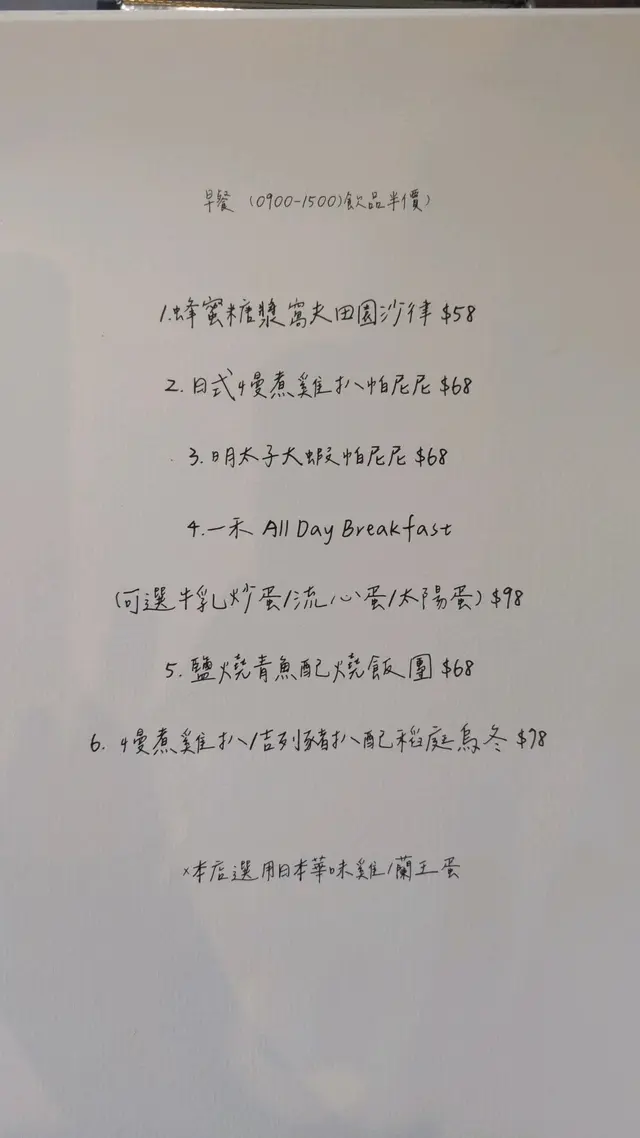 早餐 (0900-1500)飲品半價)
1.蜂蜜糖漿窩夫田園沙律 $58
2.日式慢煮雞扒帕尼尼 $68
3.明太子大蝦帕尼尼 $68
4.一禾 All Day Breakfast
(可選牛乳炒蛋/流心蛋/太陽蛋) $98
5.鹽燒青魚配燒飯團 $68
6.慢煮雞扒/吉列豬扒配稻庭烏冬 $78
×本店選用日本華味雞/蘭王蛋